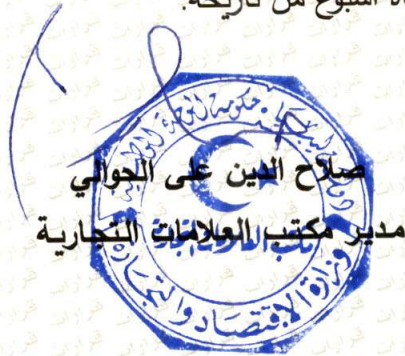 أسبوع من تاريخه.
صلاح الدين على الجوالي
مدير مكتب العلامات التجارية
حكومة الوحدة الوطنية
وزارة الاقتصاد والتجارة